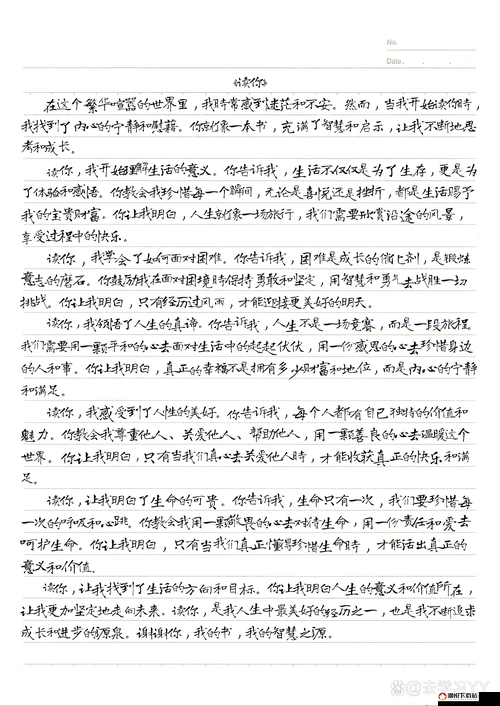 No.
Date. . .
《读你》
在这个繁华喧嚣的世界里，我时常感到迷茫和不安。然而，当我开始读你时，
我找到了内心的宁静和慰藉。你就像一本书，充满了智慧和启示，让我不断地思
考和成长。
读你，我开始理解生活的意义。你告诉我，生活不仅仅是为了生存，更是为
了体验和感悟。你教会我珍惜每一个瞬间，无论是喜悦还是挫折，都是生活赐予
我的宝贵财富。你让我明白，人生就像一场旅行，我们需要欣赏沿途的风景，
享受过程中的快乐。
读你，我学会了如何面对困难。你告诉我，困难是成长的催化剂，是锻炼
意志的磨石。你鼓励我在面对困境时保持勇敢和坚定，用智慧和勇气去战胜一切
挑战。你让我明白，只有经历过风雨，才能迎接更美好的明天。
读你，我领悟了人生的真谛。你告诉我，人生不是一场竞赛，而是一段旅程。
我们需要用一颗平和的心去面对生活中的起起伏伏，用一份感恩的心去珍惜身边
的人和事。你让我明白，真正的幸福不是拥有多少财富和地位，而是内心的宁静
和满足。
读你，我感受到了人性的美好。你告诉我，每个人都有自己独特的价值和
魅力。你教会我尊重他人、关爱他人、帮助他人，用一颗善良的心去温暖这个
世界。你让我明白，只有当我们真心去关爱他人时，才能收获真正的快乐和满
足。
读你，让我明白了生命的可贵。你告诉我，生命只有一次，我们要珍惜每
一次的呼吸和心跳。你教会我用一颗敬畏的心去对待生命，用一份责任和爱去
呵护生命。你让我明白，只有当我们真正懂得珍惜生命时，才能活出真正的
意义和价值。
读你，让我找到了生活的方向和目标。你让我明白人生的意义和价值所在，
让我更加坚定地走向未来。读你，是我人生中最美好的经历之一，也是我不断追求
成长和进步的源泉。谢谢你，我的书，我的智慧之源。
@去学习YY
潮州下载站